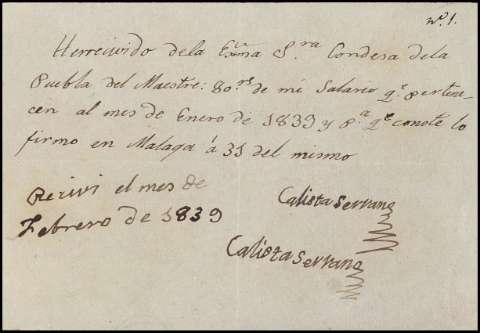 Nº. 1.
Herreivido dela Exma Sra Condesa dela
Puebla del Maestre: 80 rs de mi Salario qe pertene-
cen al mes de Enero de 1839 y pa qe conste lo
firmo en Malaga á 31 del mismo
Calista Serrano
Rerivi el mes de
Febrero de 1839
Calista Serrano